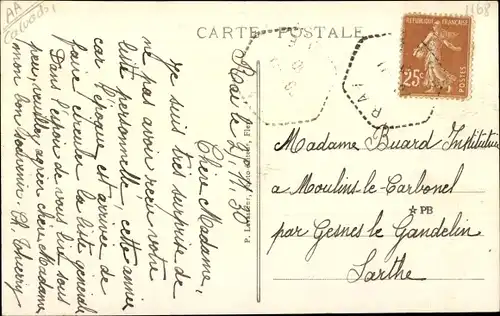 AA
Calvados
1168
CARTE POSTALE
RÉPUBLIQUE FRANÇAISE
25c
POSTES
RAI
Rai le 2.11.30
Chère Madame,
Je suis très surprise de
ne pas avoir reçu votre
liste personnelle, cette année
car l'époque est arrivée de
faire circuler la liste générale
Dans l'espoir de vous lire sous
peu, veuillez agréer chère Madame
mon bon souvenir. Th. Thierry
Madame Buard Institutrice
à Moulins-le-Carbonel
☆PB
par Gesnes le Gandelin
Sarthe